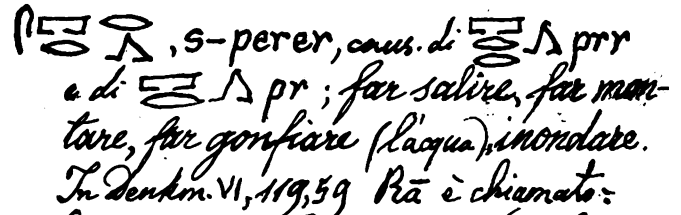 𓋴𓉐𓂋𓂋𓂻, s-perer, caus. di 𓉐𓂋𓂋𓂻 prr
e di 𓉐𓂋𓂻 pr; far salire, far mon-
tare, far gonfiare (l'acqua), inondare.
In Denkm. VI, 119,59 Rā è chiamato: